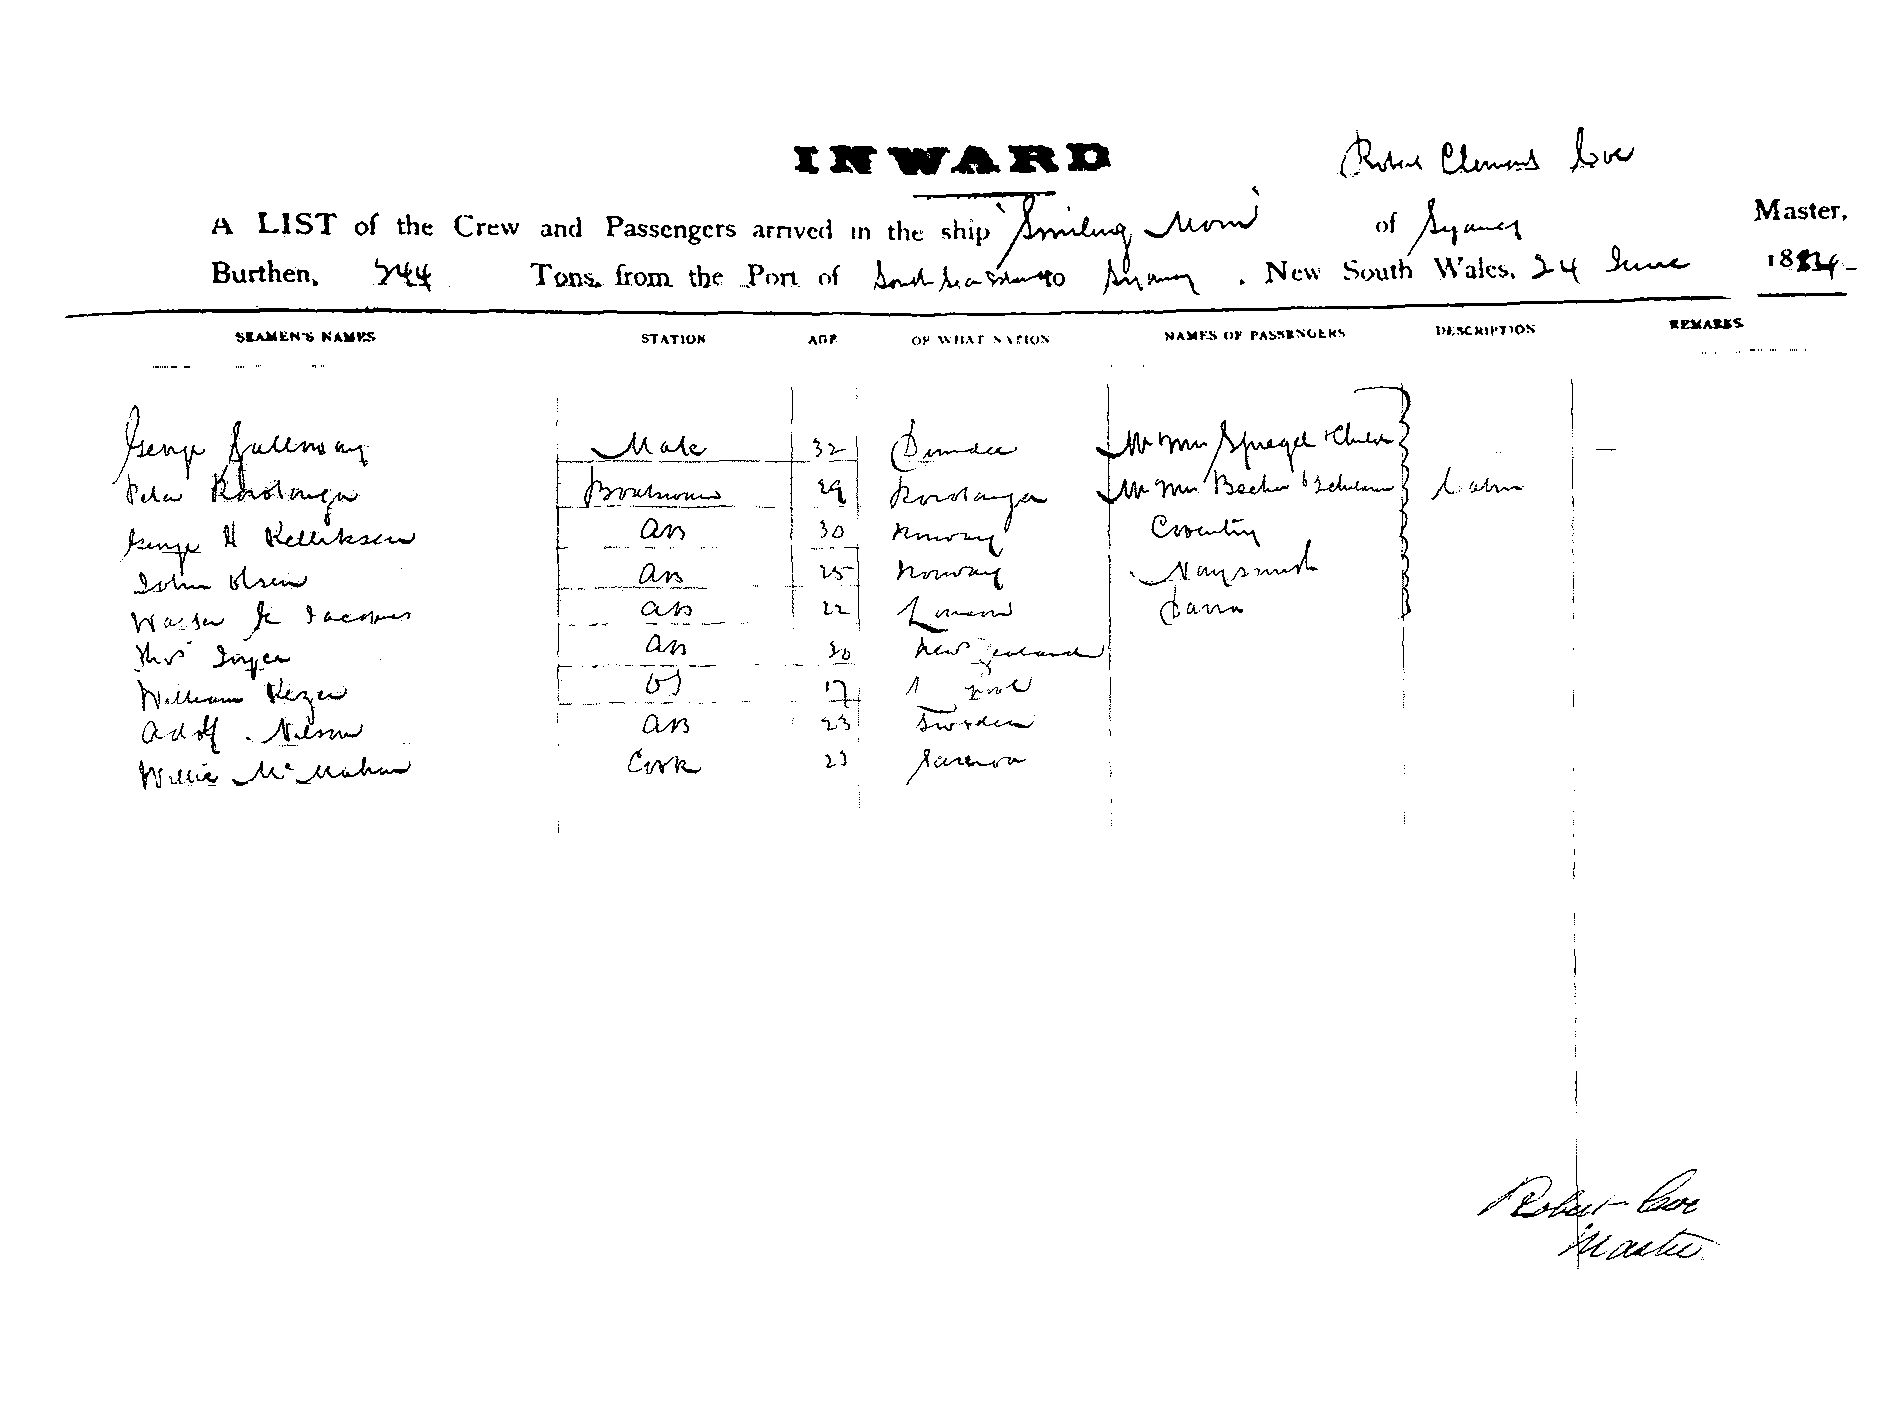 INWARD
Robert Clement Coe
A LIST of the Crew and Passengers arrived in the ship "Smiling Morn" of Sydney Master,
Burthen, 244 Tons, from the Port of South Sea Islands to Sydney, New South Wales, 24 June 1884
SEAMEN'S NAMES STATION AGE OF WHAT NATION NAMES OF PASSENGERS DESCRIPTION REMARKS
George Galloway Mate 32 Dundee Mr Mrs Spiegel
Peter Rarotonga Boatswain 29 Rarotonga Mr Mrs Becker Cabin
George H AB 30 Norway Coventry
John Olsen AB 25 Norway Naysmith
AB 22 London
Thos AB 30 New Zealand
William OS 17 L pool
Adolf Nilson AB 23 Sweden
Willie McMahon Cook 23 Samoa
Robert Coe
Master